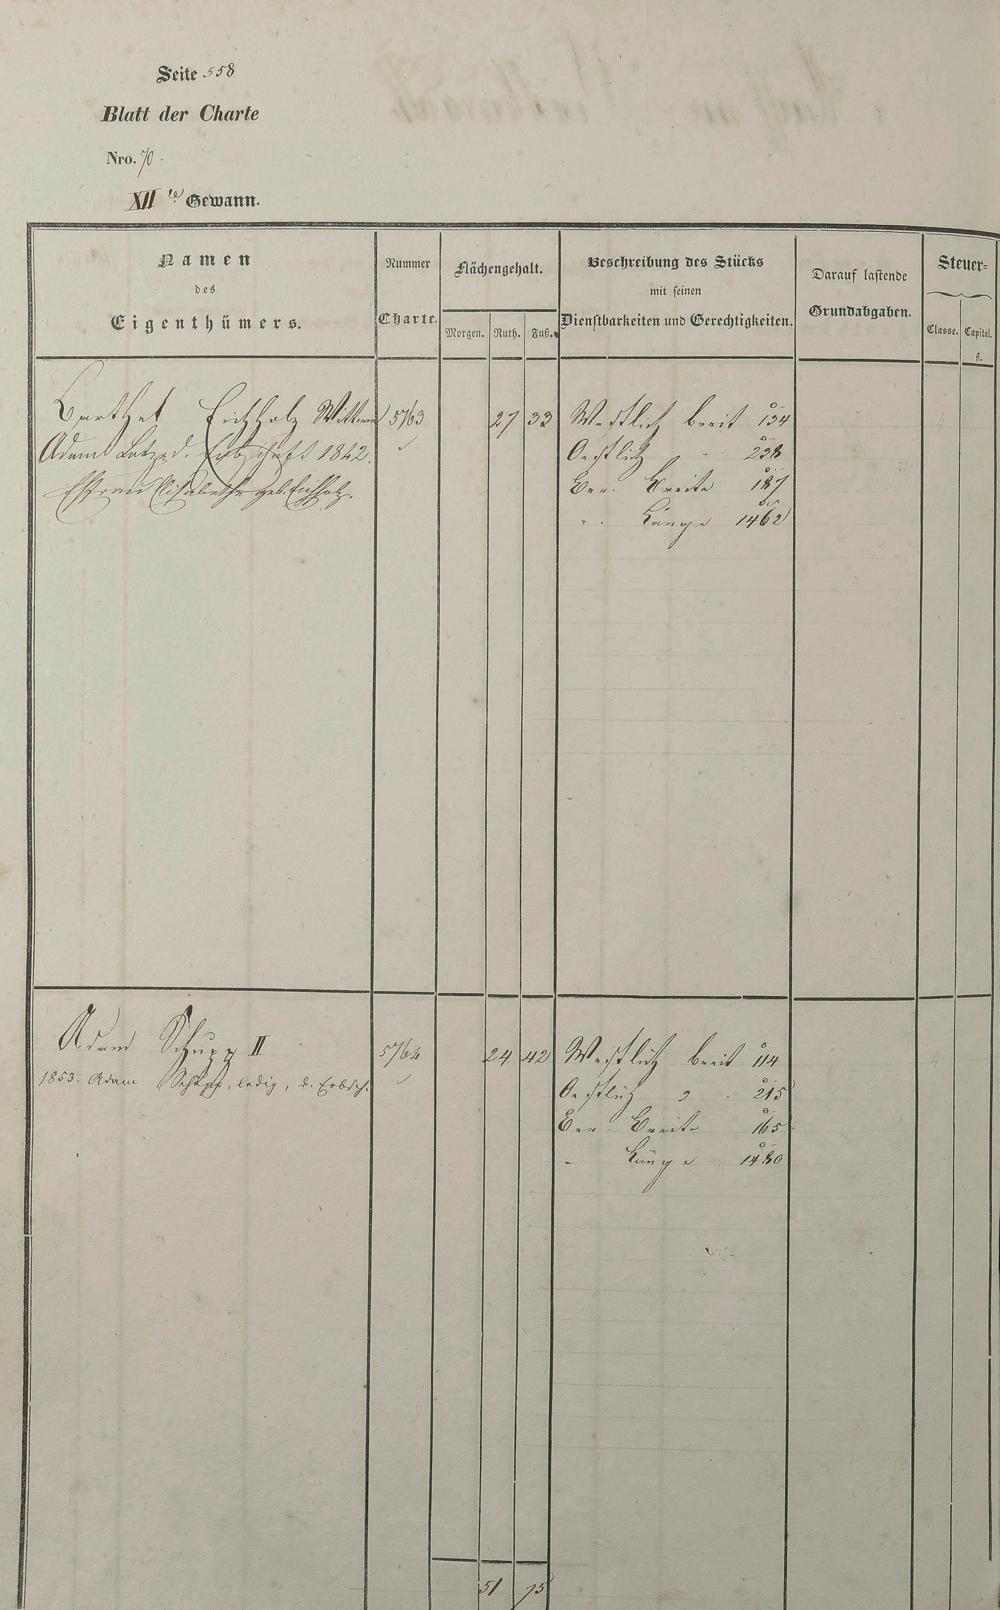 Seite 558
Blatt der Charte
Nro. 70.
XII te Gewann.
Namen des Eigenthümers.
Nummer Charte.
Flächengehalt.
Morgen. Ruth. Fuß.
Beschreibung des Stücks mit seinen Dienstbarkeiten und Gerechtigkeiten.
Darauf lastende Grundabgaben.
Steuer=
Classe. Capital. fl.
Barthel Eichholz Wittwe 5763 27 33 Westlich breit 134
Adam d. Erbschaft 1842. Oestlich " 238
Ehefrau Elisabetha geb. Eichholz. Ber. Breite 187
" Länge 1462
Adam Schupp II 5764 24 42 Westlich breit 114
1853. Adam Schupp, ledig, d. Erbsch. Oestlich " 215
Ber. Breite 165
" Länge 1480
51 75